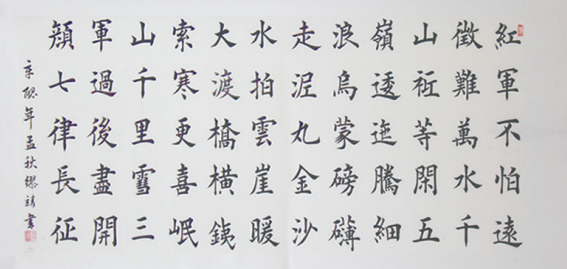 紅軍不怕遠
徵難萬水千
山衹等閑五
嶺逶迤騰細
浪烏蒙磅礴
走泥丸金沙
水拍雲崖暖
大渡橋橫銕
索寒更喜岷
山千里雪三
軍過後盡開
顏七律長征
辛卯年孟秋書